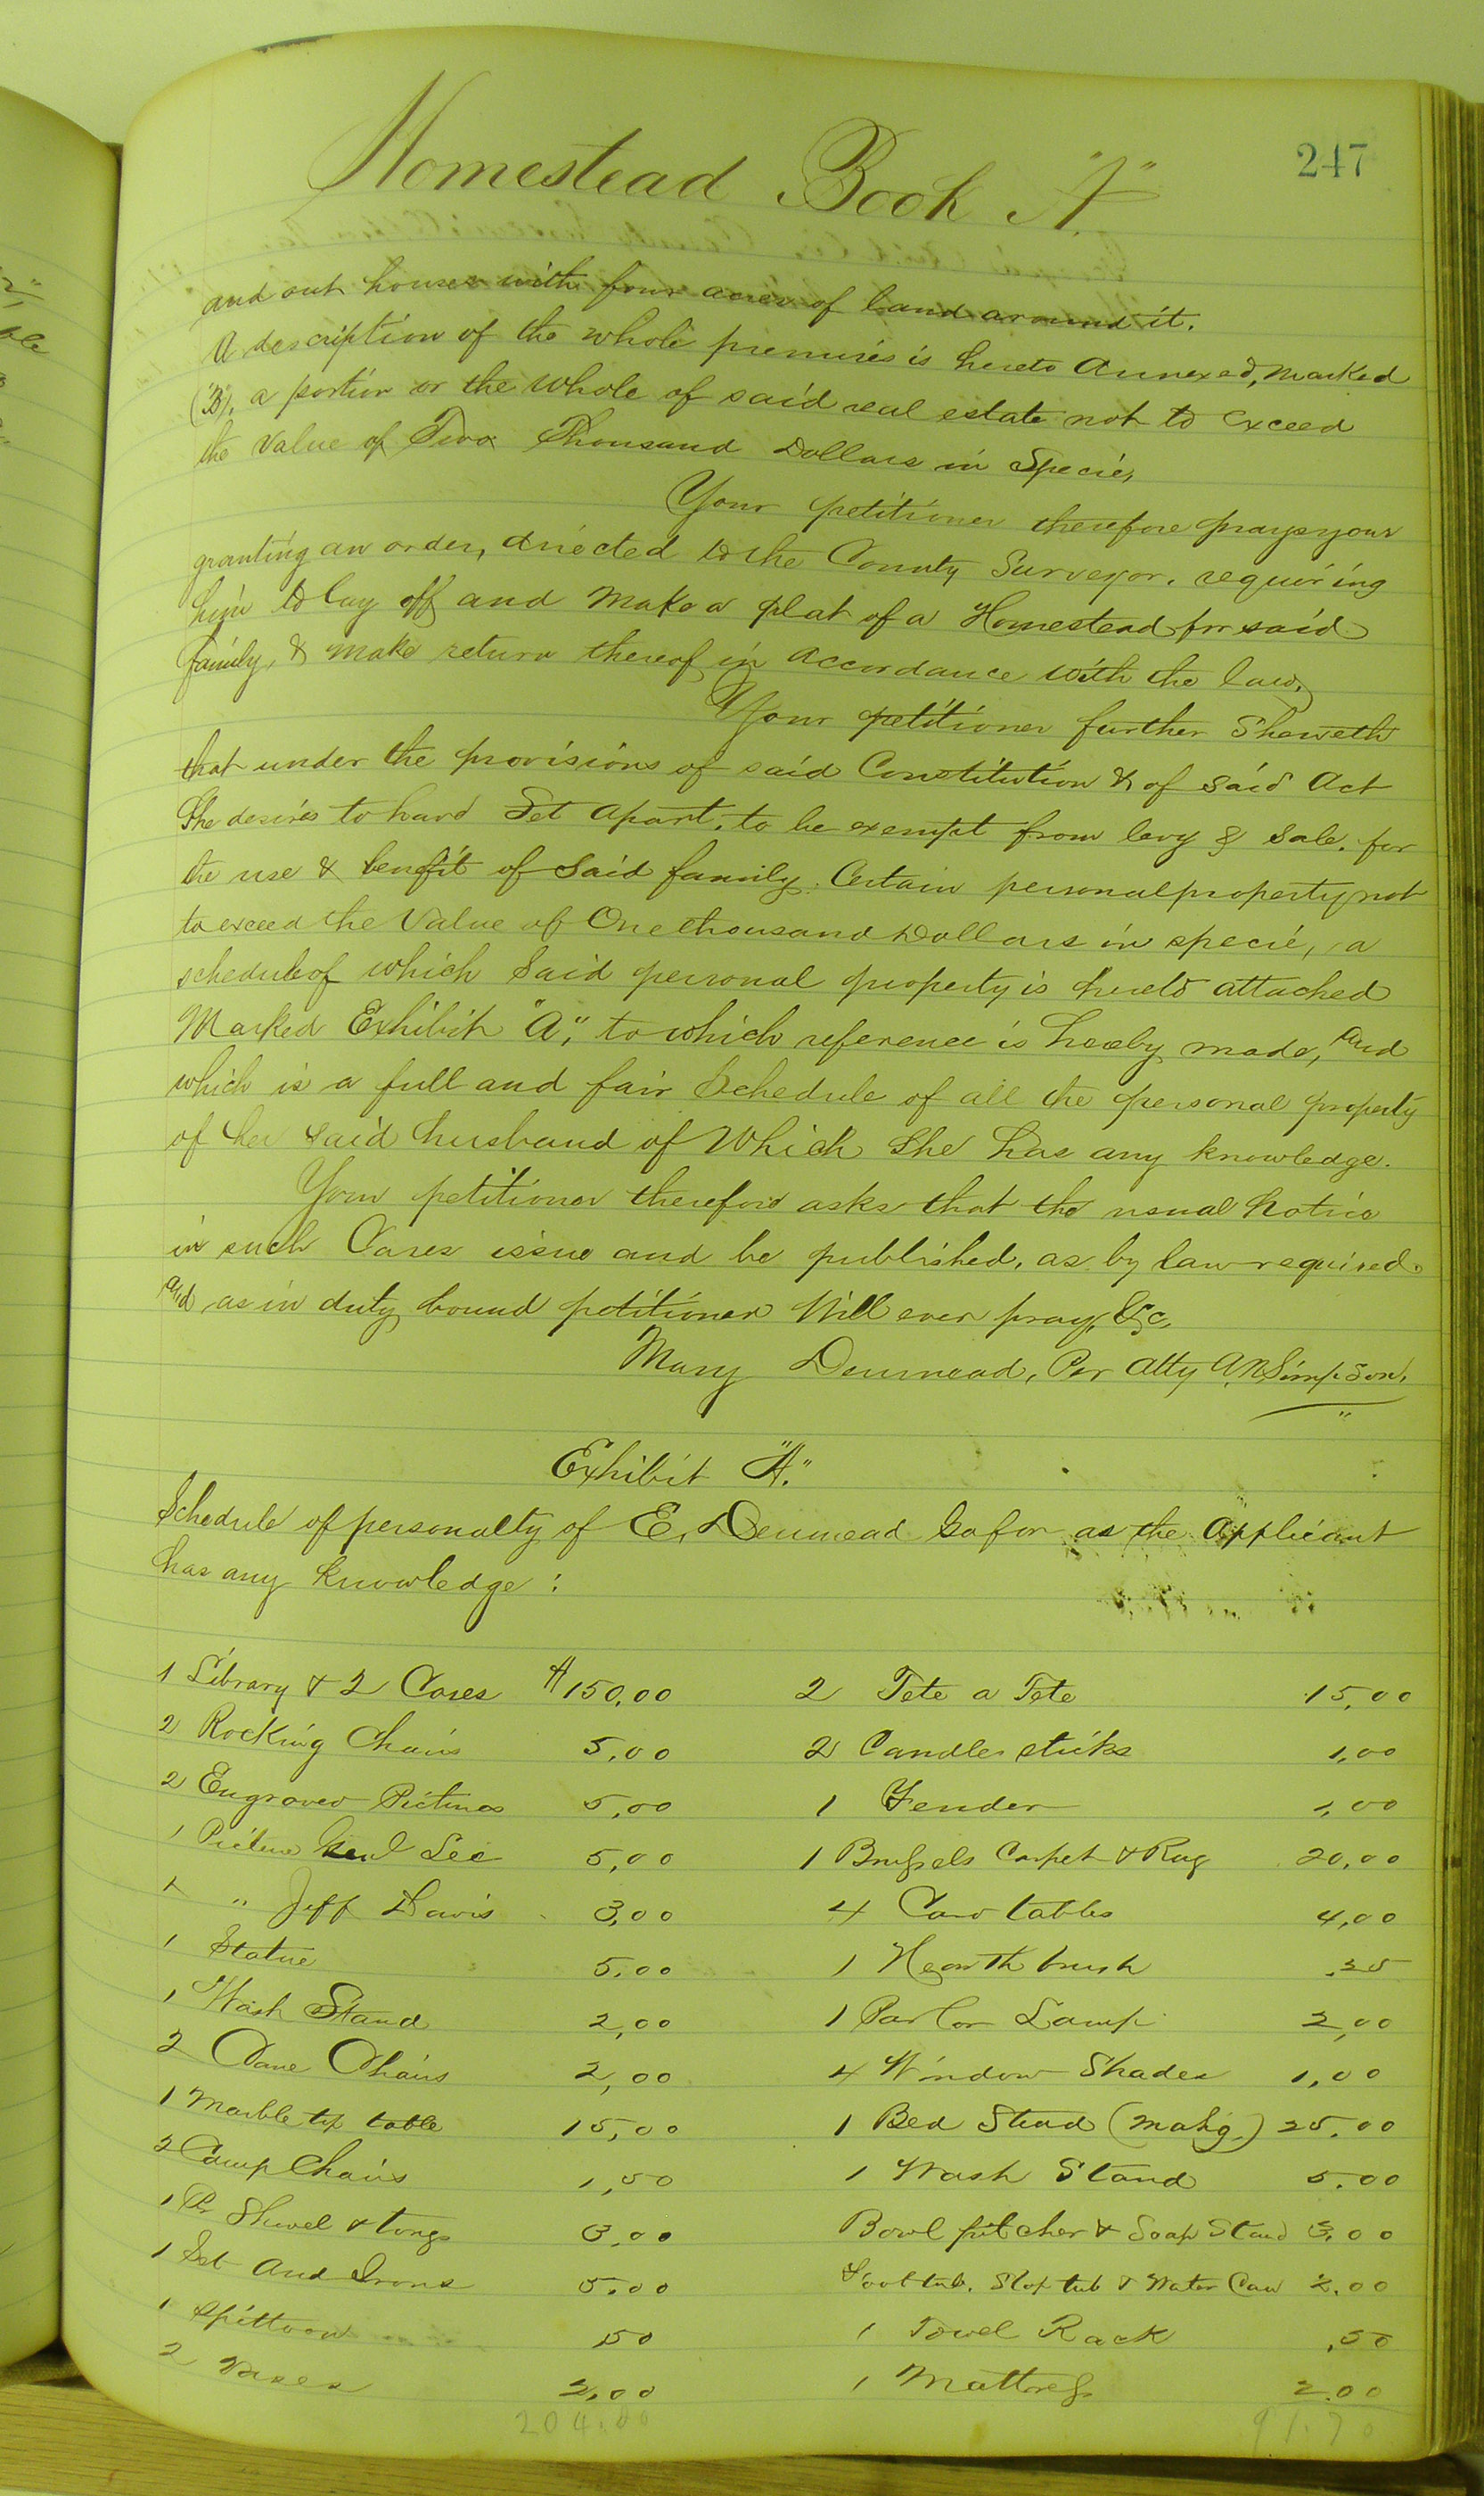 247
Homestead Book "A"
and out houses with four acres of land around it.
A description of the whole premises is hereto annexed, marked
("B"), a portion or the whole of said real estate not to exceed
the value of Two Thousand Dollars in Specie,
Your petitioner therefore prays your
granting an order, directed to the County Surveyor, requiring
him to lay off and make a plat of a Homestead for said
family, & make return thereof in accordance with the law,
Your petitioner further Sheweth
that under the provisions of said Constitution & of said Act
She desires to have Set apart, to be exempt from levy & sale, for
the use & benefit of said family, Certain personal property not
to exceed the Value of One thousand Dollars in specie, a
schedule of which Said personal property is hereto attached
Marked Exhibit "A", to which reference is hereby made, and
which is a full and fair Schedule of all the personal property
of her said husband of Which She has any knowledge.
Your petitioner therefore asks that the usual Notice
in such Cases issue and be published, as by law required.
and as in duty bound petitioner Will ever pray, &c,
Mary Denmead, Per Atty A.N. Simpson,
"
Exhibit "A."
Schedule of personalty of E, Denmead So far as the Applicant
has any knowledge :
1 Library & 2 Cases $150,00
2 Rocking Chairs 5,00
2 Engraved Pictures 5,00
1 Picture Genl Lee 5,00
1 " Jeff Davis 3,00
1 Statue 5.00
1 Wash Stand 2,00
2 Cane Chairs 2,00
1 Marble top table 15,00
2 Camp Chairs 1,50
1 Pr Shovel & tongs 3,00
1 Set And Irons 5.00
1 Spittoon ,50
2 Vases 2,00
204.00
2 Tete a Tete 15,00
2 Candle sticks 1,00
1 Fender 1,00
1 Brussels Carpet & Rug 20,00
4 Card tables 4,00
1 Hearth brush .25
1 Parlor Lamp 2,00
4 Window Shades 1,00
1 Bed Stead (Mahg.) 25.00
1 Wash Stand 5.00
Bowl pitcher & Soap Stand 3.00
Foot tub, Slop tub & Water Can 2.00
1 Towel Rack ,50
1 Mattress 2.00